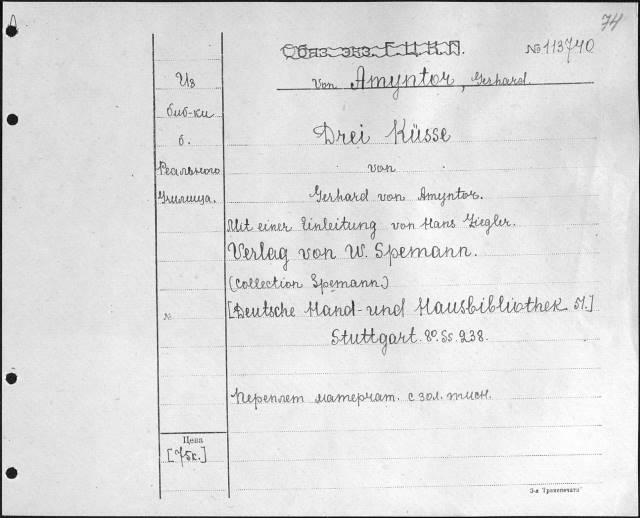 74
Обяз. экз. Г.Ц.К.П.
№113740
von Amyntor, Gerhard.
Из
биб-ки
б.
Реального
Училища.
Drei Küsse
von
Gerhard von Amyntor.
Mit einer Einleitung von Hans Ziegler.
Verlag von W. Spemann.
(Collection Spemann.)
№
[Deutsche Hand- und Hausbibliothek 51.]
Stuttgart. 8º. Ss. 238.
Переплет матерчат. с зол. тисн.
Цена
[75к.]
3-я "Транспечати"